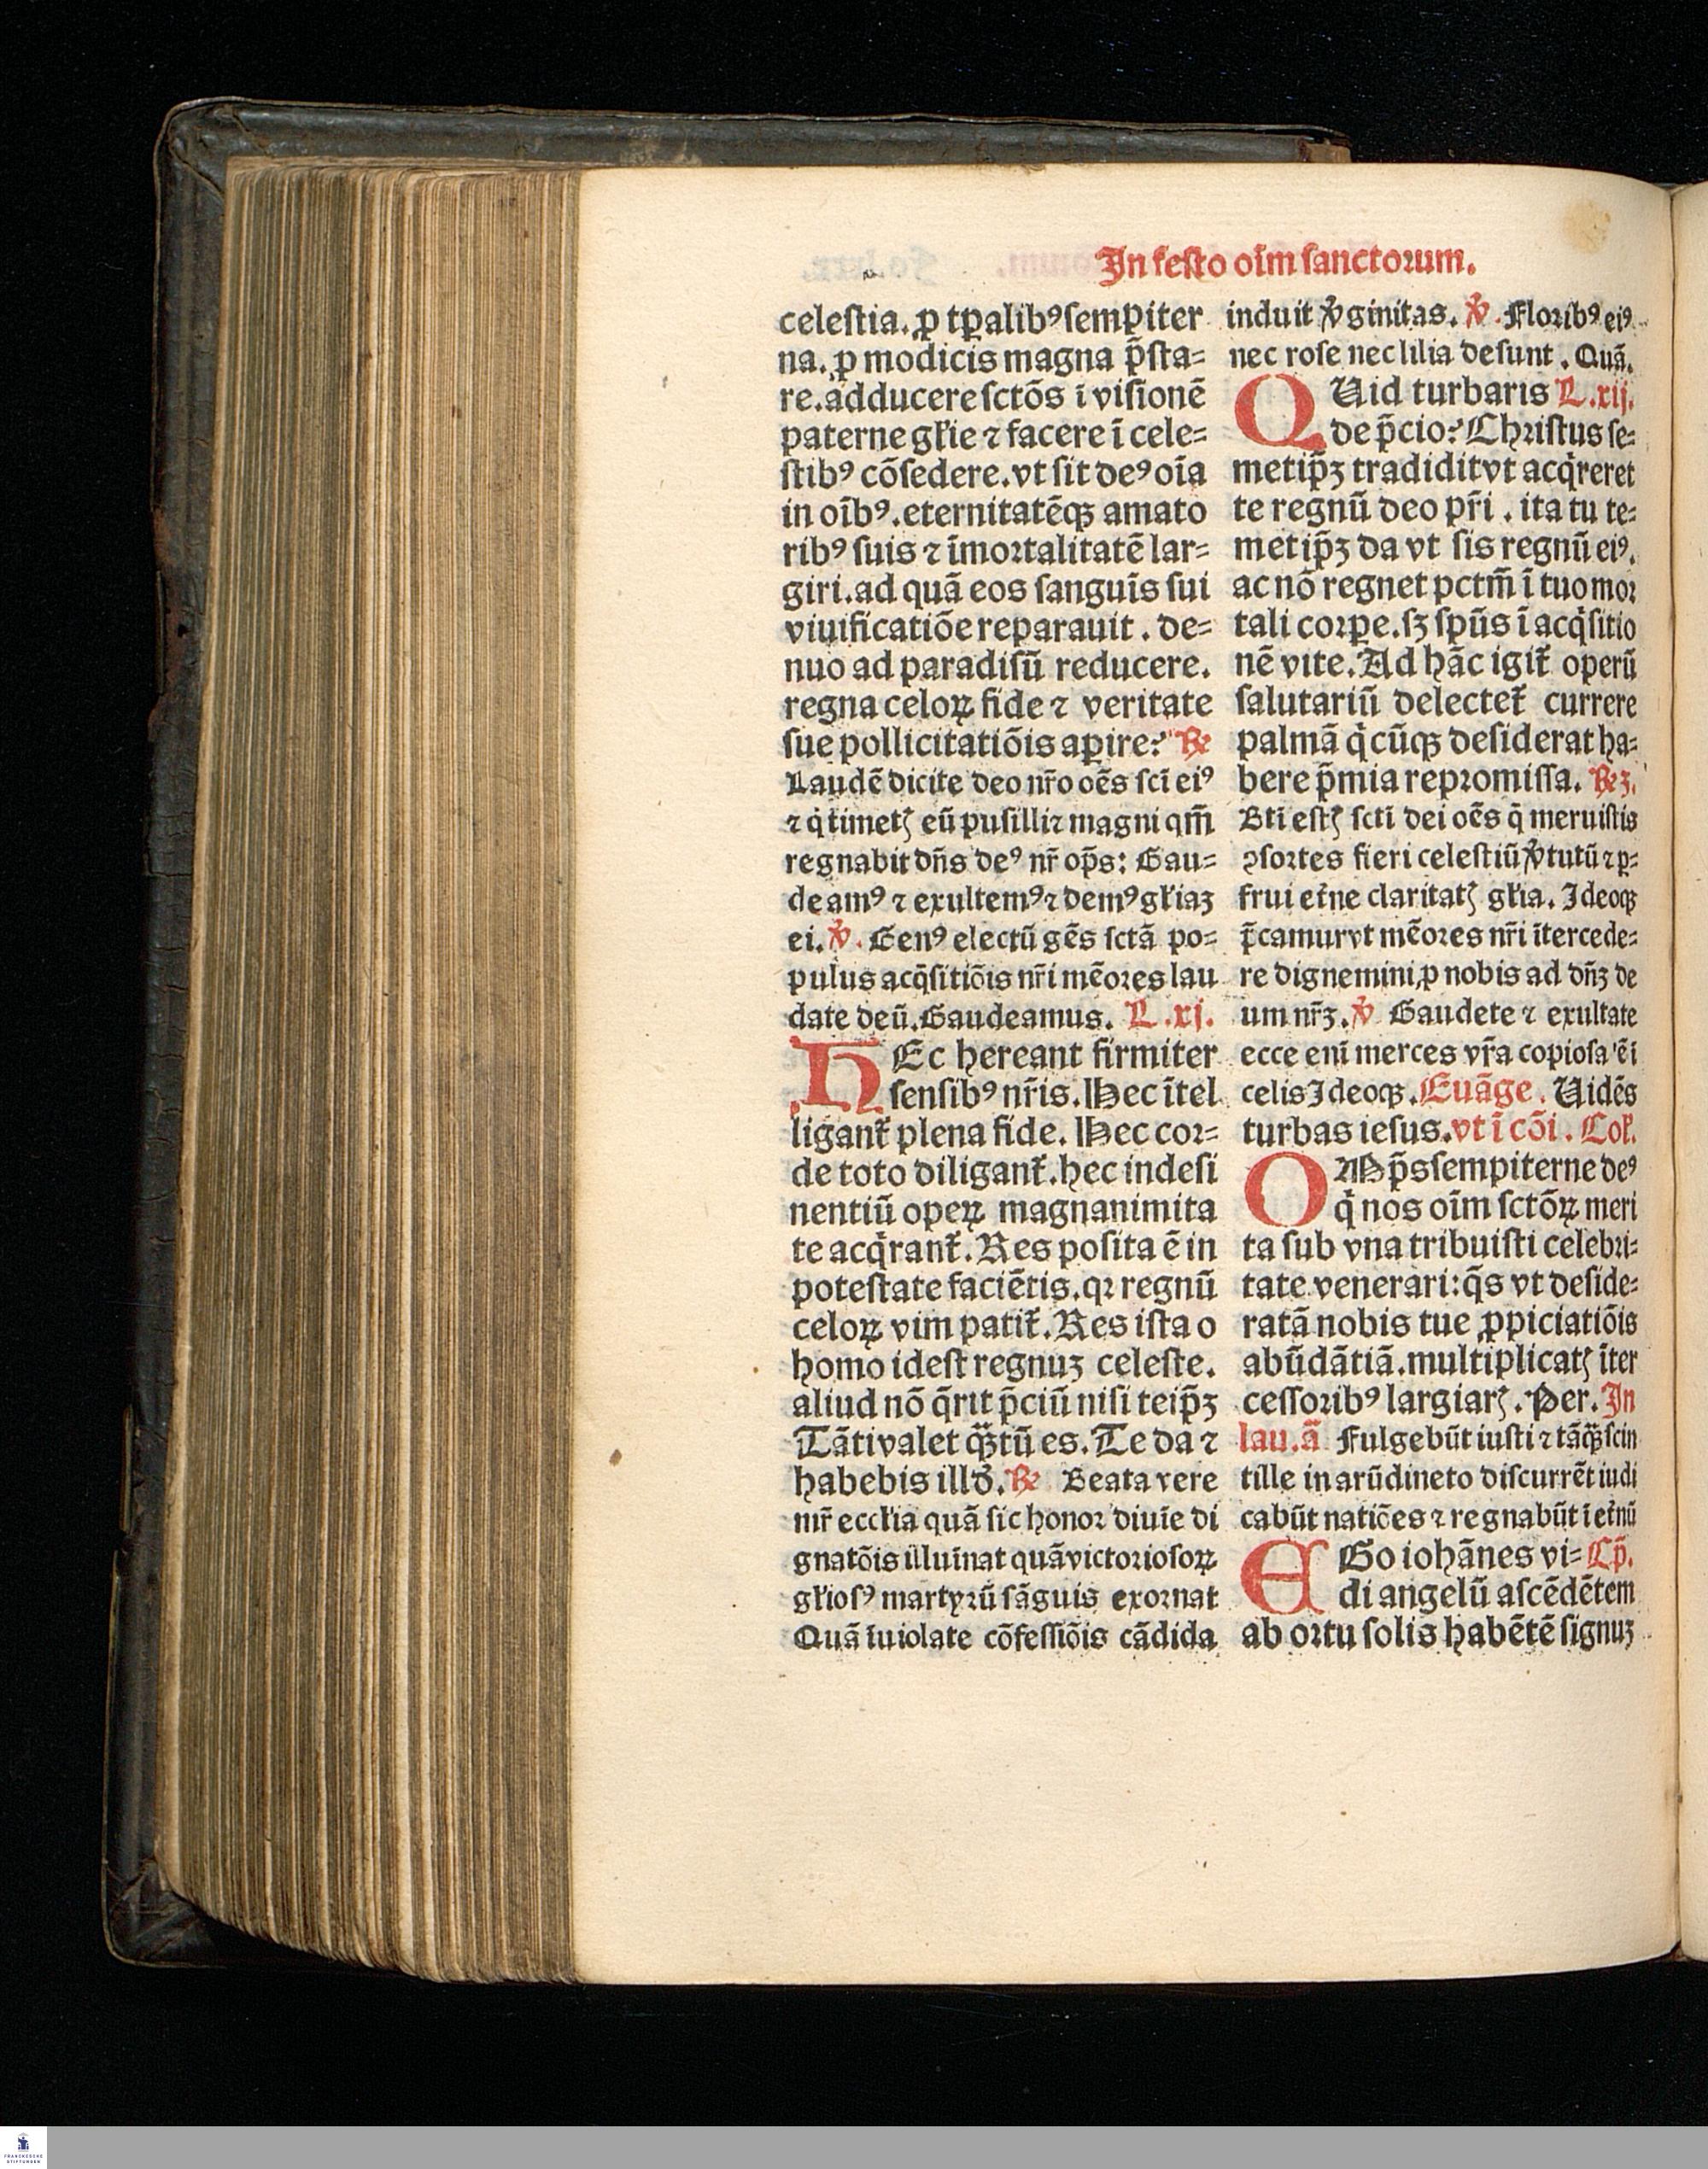 In festo oīm sanctorum.
celestia. ꝓ tꝑalibꝰ sempiter
na. ꝓ modicis magna p̄sta⸗
re. adducere sctōs ī visionē
paterne gl'ie ⁊ facere ī cele⸗
stibꝰ cōsedere. vt sit deꝰ oīa
in oībꝰ. eternitatēqꝫ amato
ribꝰ suis ⁊ īmortalitatē lar⸗
giri. ad quā eos sanguīs sui
viuificatiōe reparauit. de⸗
nuo ad paradisū reducere.
regna celoꝝ fide ⁊ veritate
sue pollicitatiōis aꝑire? ℟
Laudē dicite deo nr̄o oēs sci̅ eiꝰ
⁊ q̇ timetꝭ eū pusilli ⁊ magni qm̄
regnabit dn̄s deꝰ nr̄ op̄s: Gau⸗
deamꝰ ⁊ exultemꝰ ⁊ demꝰ gl'iaꝫ
ei. ℣. Genꝰ electū gēs sctā po⸗
pulus acq̇sitiōis nr̄i mēores lau
date deū. Gaudeamus. L. xj.
HEc hereant firmiter
sensibꝰ nr̄is. Hec ītel
ligant᷑ plena fide. Hec cor⸗
de toto diligant᷑. hec indesi
nentiū operꝝ magnanimita
te acq̇rant᷑. Res posita ē in
potestate faciētis. qꝛ regnū
celoꝝ vim patit᷑. Res ista o
homo idest regnuꝫ celeste.
aliud nō q̄rit p̄ciū nisi teip̄ꝫ
Tāti valet qꝫtū es. Te da ⁊
habebis illd̓. ℟ Beata vere
mr̄ eccl'ia quā sic honor diuīe di
gnatōis illuīnat quā victoriosoꝝ
gl'iosꝰ martyrū sāguis exornat
Quā īuiolate cōfessiōis cādida
induit v̓ginitas. ℣. Floribꝰ eiꝰ
nec rose nec lilia desunt. Quā.
QUid turbaris L. xij.
de p̄cio? Christus se⸗
metip̄ꝫ tradidit vt acq̇reret
te regnū deo pr̄i. ita tu te⸗
metip̄ꝫ da vt sis regnū eiꝰ.
ac nō regnet pctm̄ ī tuo mor
tali corꝑe. sꝫ spūs ī acq̇sitio
nē vite. Ad hāc igit᷑ operū
salutariū delectet᷑ currere
palmā q̇cūqꝫ desiderat ha⸗
bere p̄mia repromissa. ℟ꝫ.
Bti̅ estꝭ scti̅ dei oēs q̇ meruistis
ꝯsortes fieri celestiū v̓tutū ⁊ ꝑ⸗
frui et᷑ne claritatꝭ gl'ia. Ideoqꝫ
p̄camur vt mēores nr̄i ītercede⸗
re dignemini ꝓ nobis ad dn̄ꝫ de
um nr̄ꝫ. ℣ Gaudete ⁊ exultate
ecce eni̅ merces vr̄a copiosa ē ī
celis Ideoqꝫ. Euāge. Uidēs
turbas iesus. vt ī cōi. Col'.
OMp̄s sempiterne deꝰ
q̇ nos oīm sctōꝝ meri
ta sub vna tribuisti celebri⸗
tate venerari: q̄s vt deside⸗
ratā nobis tue ꝓpiciatiōis
abūdātiā. multiplicatꝭ īter
cessoribꝰ largiarꝭ. Per. In
lau. a᷑ Fulgebūt iusti ⁊ tāqꝫ scin
tille in arūdineto discurrēt iudi
cabūt natiōes ⁊ regnabūt ī et᷑nū
EGo iohānes vi⸗ Cp̄.
di angelū ascēdētem
ab ortu solis habētē signuꝫ
FRANCKESCHE
STIFTUNGEN